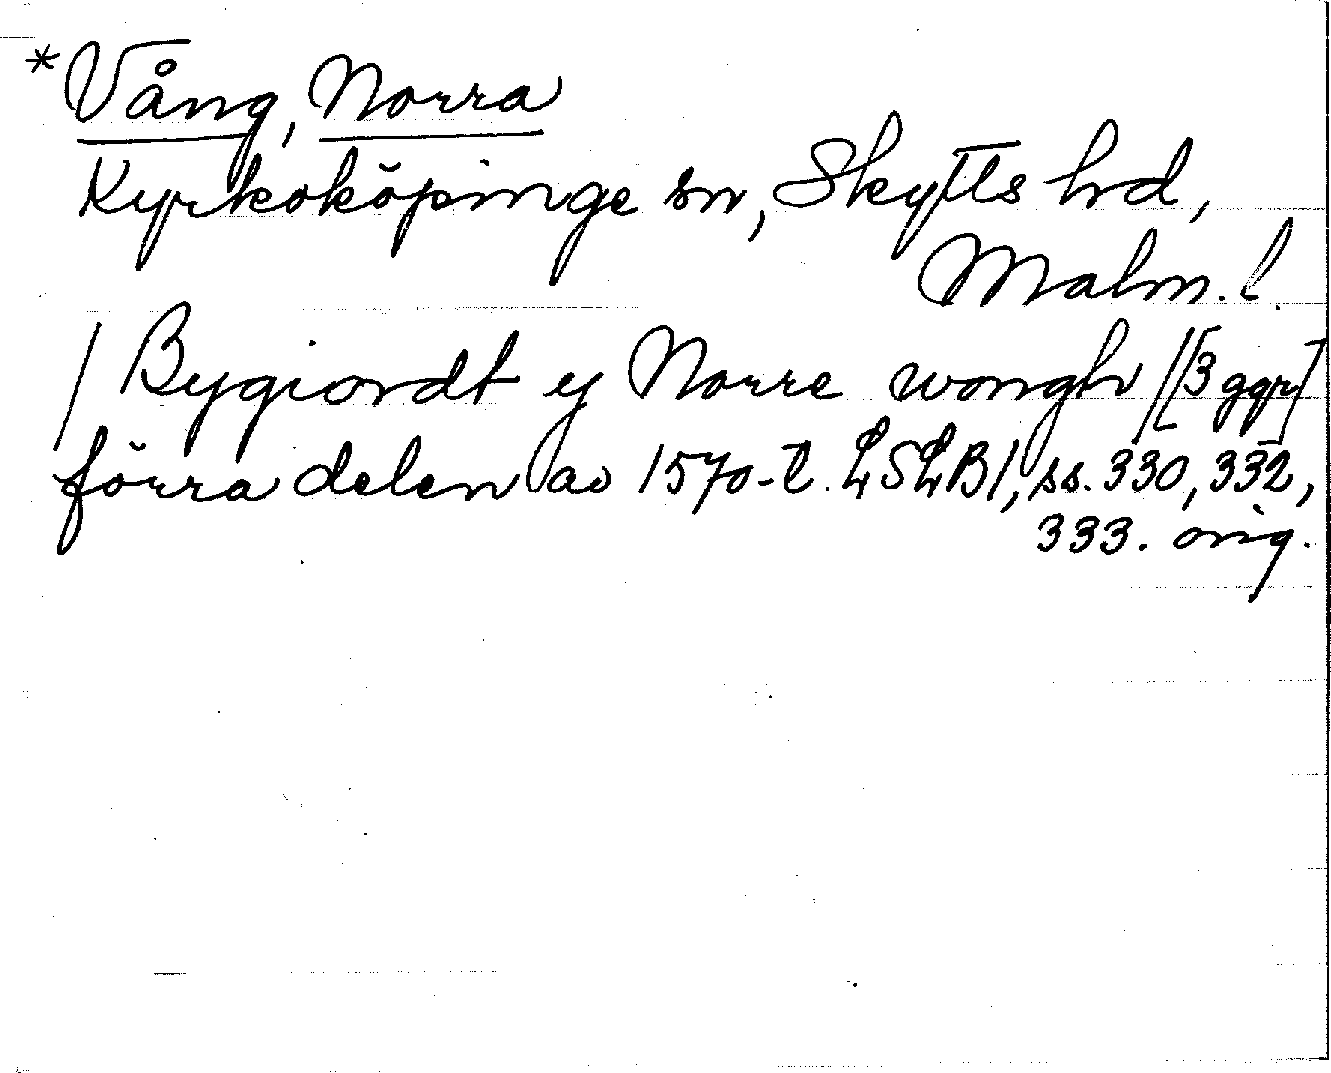 *Vång, Norra
Kyrkoköpinge sn, Skytts hd,
Malm. l.
/ Bygiordt y Norre wongh / [3 ggr]
förra delen av 1570-t. LSLB 1, ss. 330, 332,
333. orig.